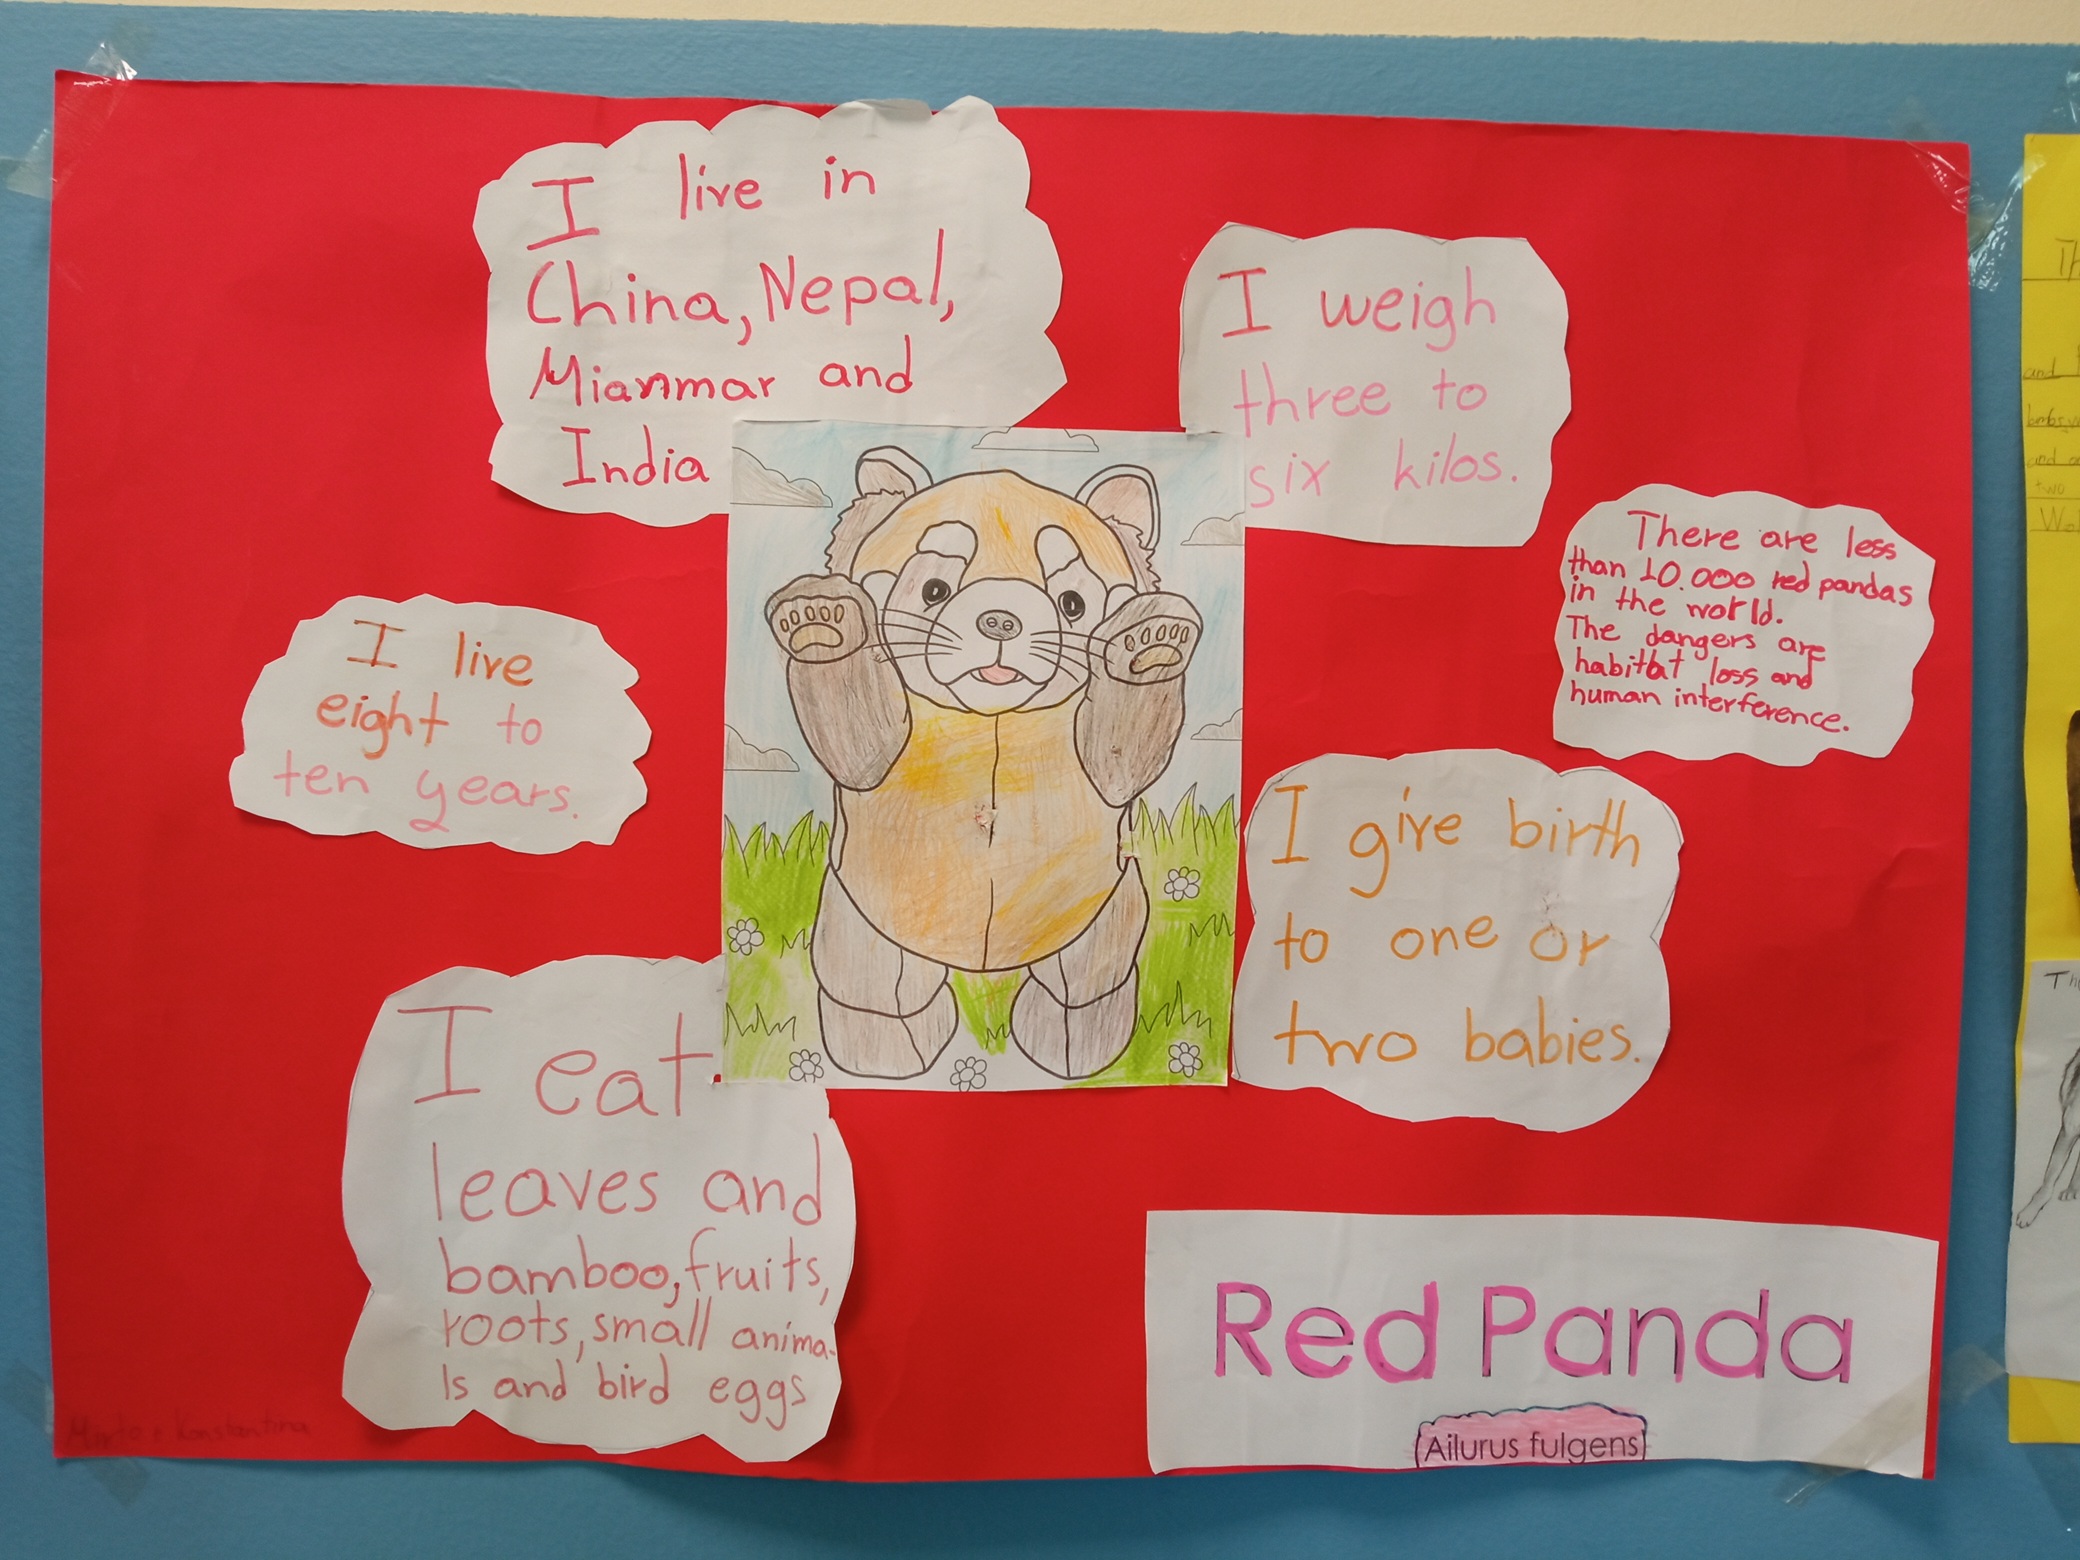 I live in
China, Nepal,
Mianmar and
India
I weigh
three to
six kilos.
There are less
than 10.000 red pandas
in the world.
The dangers are
habitat loss and
human interference.
I live
eight to
ten years.
I give birth
to one or
two babies.
I eat
leaves and
bamboo, fruits,
roots, small anima-
ls and bird eggs
Red Panda
Ailurus fulgens
Konstantina
and
and
two